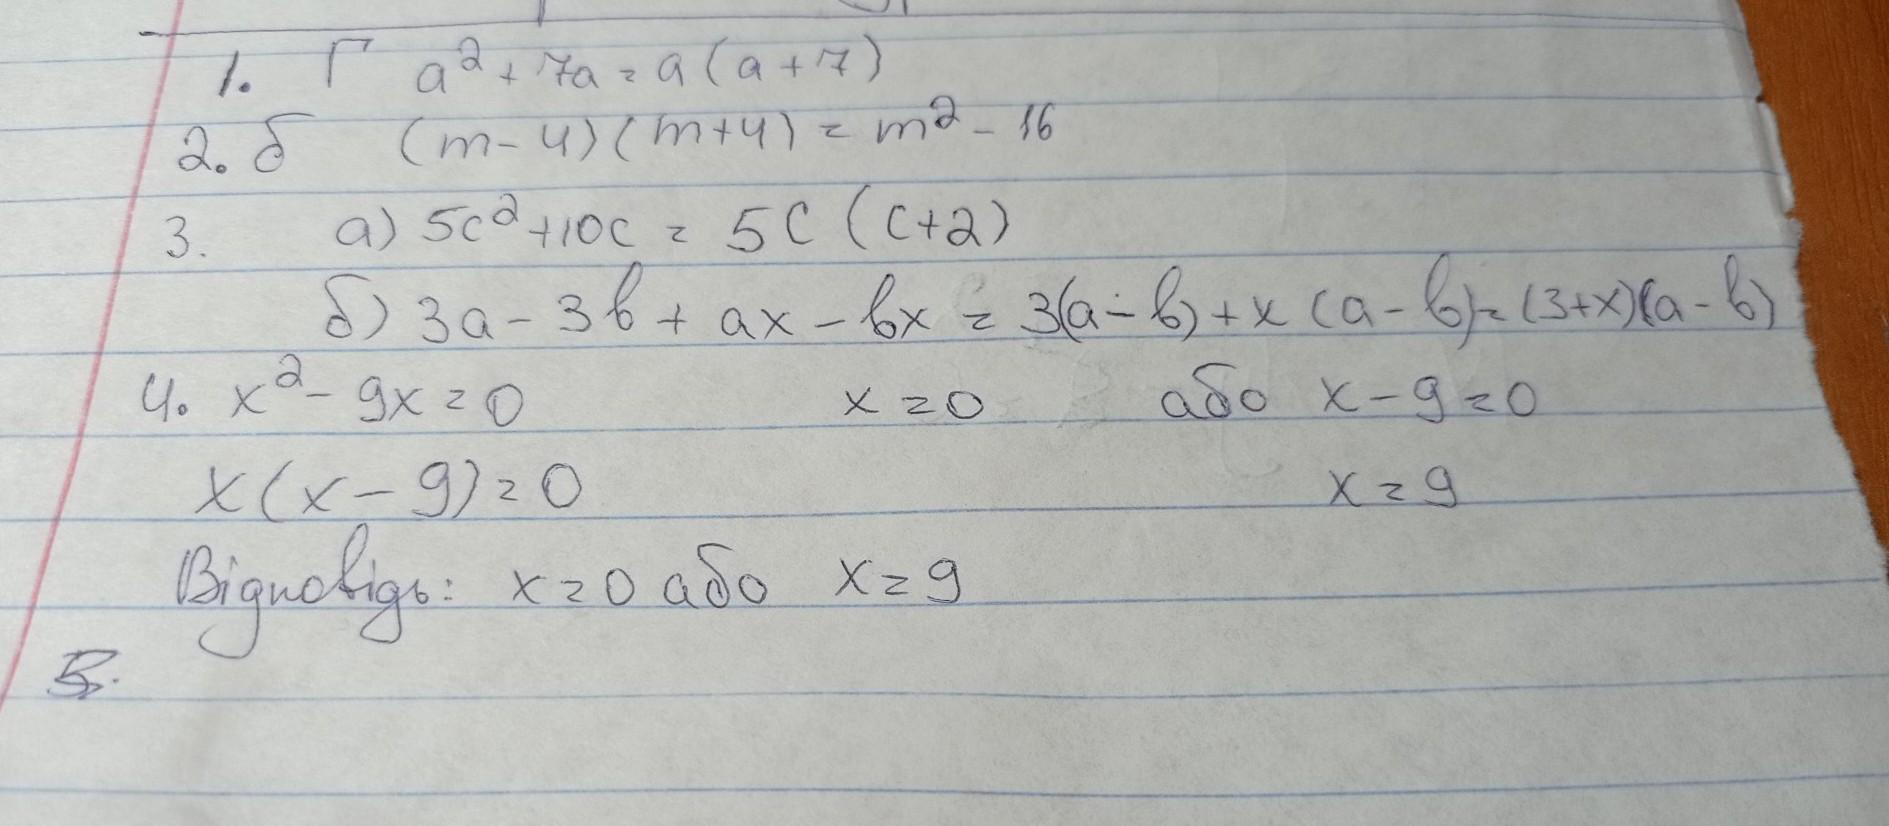 1. Г a² + 7a = a (a + 7)
2. б (m - 4) (m + 4) = m² - 16
3. а) 5c² + 10c = 5c (c + 2)
б) 3a - 3b + ax - bx = 3(a - b) + x (a - b) = (3 + x)(a - b)
4. x² - 9x = 0 x = 0 або x - 9 = 0
x (x - 9) = 0 x = 9
Відповідь: x = 0 або x = 9
5.